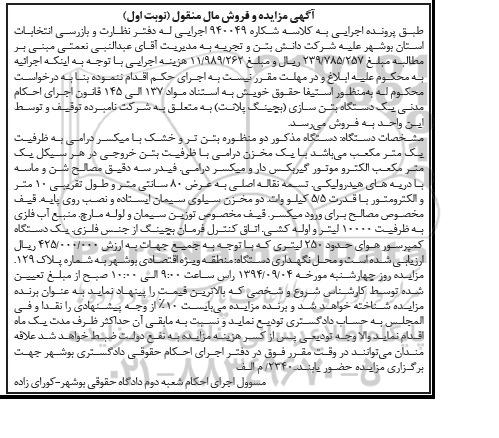 آگهی مزایده و فروش مال منقول (نوبت اول)
طبق پرونده اجرایی به کلاسه شکاره ۹۴۰۰۴۹ اجرایی له دفتر نظارت و بازرسی انتخابات
استان بوشهر علیه شرکت دانش بتن و تجربه به مدیریت آقای عبدالنبی نعمتی مبنی بر
مطالبه مبلغ ۲۳۹/۷۸۵/۲۵۷ ریال و مبلغ ۱۱/۹۸۹/۲۶۲ هزینه اجرایی با توجه به اینکه اجرائیه
به محکوم علیه ابلاغ و در مهلت مقرر نیست به اجرای حکم اقدام ننموده بنا به درخواست
محکوم له به‌منظور استیفا حقوق خویش به استناد مواد ۱۳۷ الی ۱۴۵ قانون اجرای احکام
مدنی یک دستگاه بتن سازی (بچینگ پلانت) به متعلق به شرکت نامبرده توقیف و توسط
این واحد به فروش می‌رسد.
مشخصات دستگاه: دستگاه مذکور دو منظوره بتن تر و خشک با میکسر درامی به ظرفیت
یک متر مکعب می‌باشد با یک مخزن درامی با ظرفیت بتن خروجی در هر سیکل یک
متر مکعب الکترو موتور گیربکس دار و میکسر درامی. فیدر سه دقیق مصالح شن و ماسه
با دریه های هیدرولیکی. تسمه نقاله اصلی به عرض ۸۰ سانتی متر و طول تقریبی ۱۰ متر
و الکتروموتور با قدرت ۵/۵ کیلو وات. دو مخزن سیلوی سیمان ایستاده و نصب روی پایه. قیف
مخصوص مصالح برای ورود میکسر. قیف مخصوص توزین سیمان و لوله مارچ. منبع آب فلزی
به ظرفیت ۱۰۰۰۰ لیتر و لوله کشی. اتاق کنترل فرمان بچینگ از جنس فلزی. یک دستگاه
کمپرسور هوای حدود ۲۵۰ لیتری که با توجه به جمیع جهات به ارزش ۴۲۵/۰۰۰/۰۰۰ ریال
ارزیابی شده است و محل نگهداری دستگاه: منطقه ویژه اقتصادی بوشهر به شماره پلاک ۱۲۹.
مزایده روز چهارشنبه مورخه ۱۳۹۴/۰۹/۰۴ راس ساعت ۹:۰۰ الی ۱۰:۰۰ صبح از مبلغ تعیین
شده توسط کارشناس شروع و شخصی که بالاترین قیمت را پینهاد نماید به عنوان برنده
مزایده شناخته خواهد شد و برنده مزایده می‌بایست ۱۰٪ از وجه پیشنهادی را نقدا و فی
المجلس به حساب دادگستری تودیع نماید و نسبت به مابقی آن حداکثر ظرف مدت یک ماه
اقدام نماید والا وجه تودیعی پس از کسر هزینه مزایده به نفع دولت ضبط خواهد شد علاقه
مندان می‌توانند در وقت مقرر فوق در دفتر اجرای احکام حقوقی دادگستری بوشهر جهت
برگزاری مزایده حضور یابند. ۲۳۴۰/ م الف
مسوول اجرای احکام شعبه دوم دادگاه حقوقی بوشهر-کورای زاده
۰۲۱-۸۸۳۴۹۶۷۰-۵